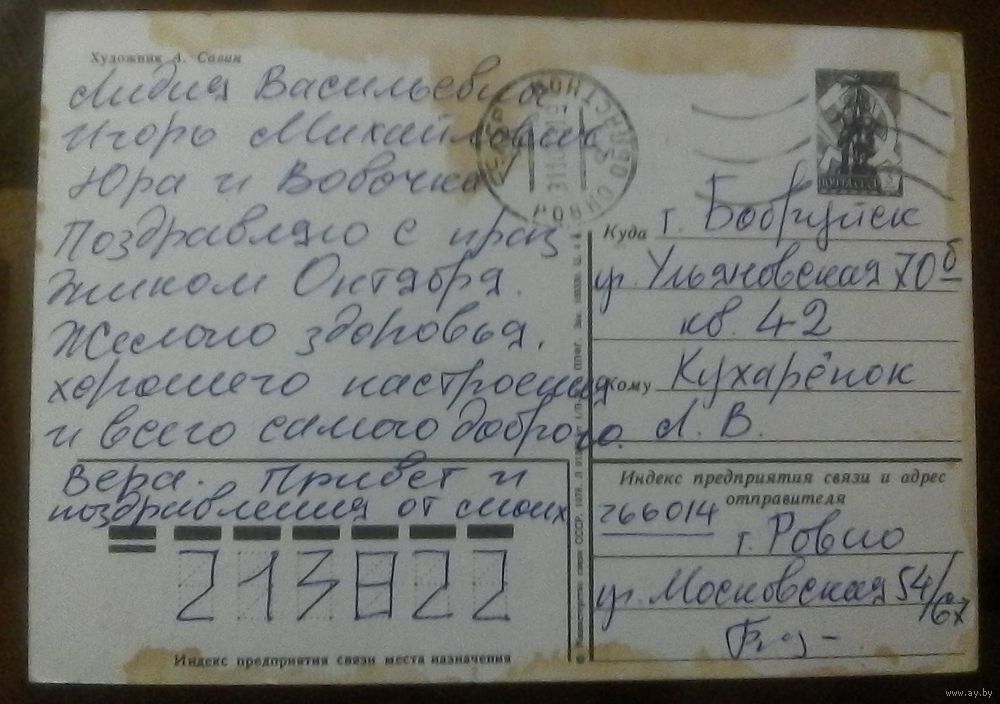 Художник А. Савин
Лидия Васильевна,
Игорь Михайлович
Юра и Вовочка
Поздравляю с праз
дником Октября.
Желаю здоровья,
хорошего настроения
и всего самого доброго.
Вера. Привет и
поздравления от моих
213822
Индекс предприятия связи места назначения
РОВНО
ПОЧТА СССР
Куда г. Бобруйск
ул. Ульяновская 70б
кв. 42
Кому Кухарёнок
Л. В.
Индекс предприятия связи и адрес
отправителя
266014
г. Ровно
ул. Московская 54/67
© Министерство связи СССР. 1978.
www.ay.by